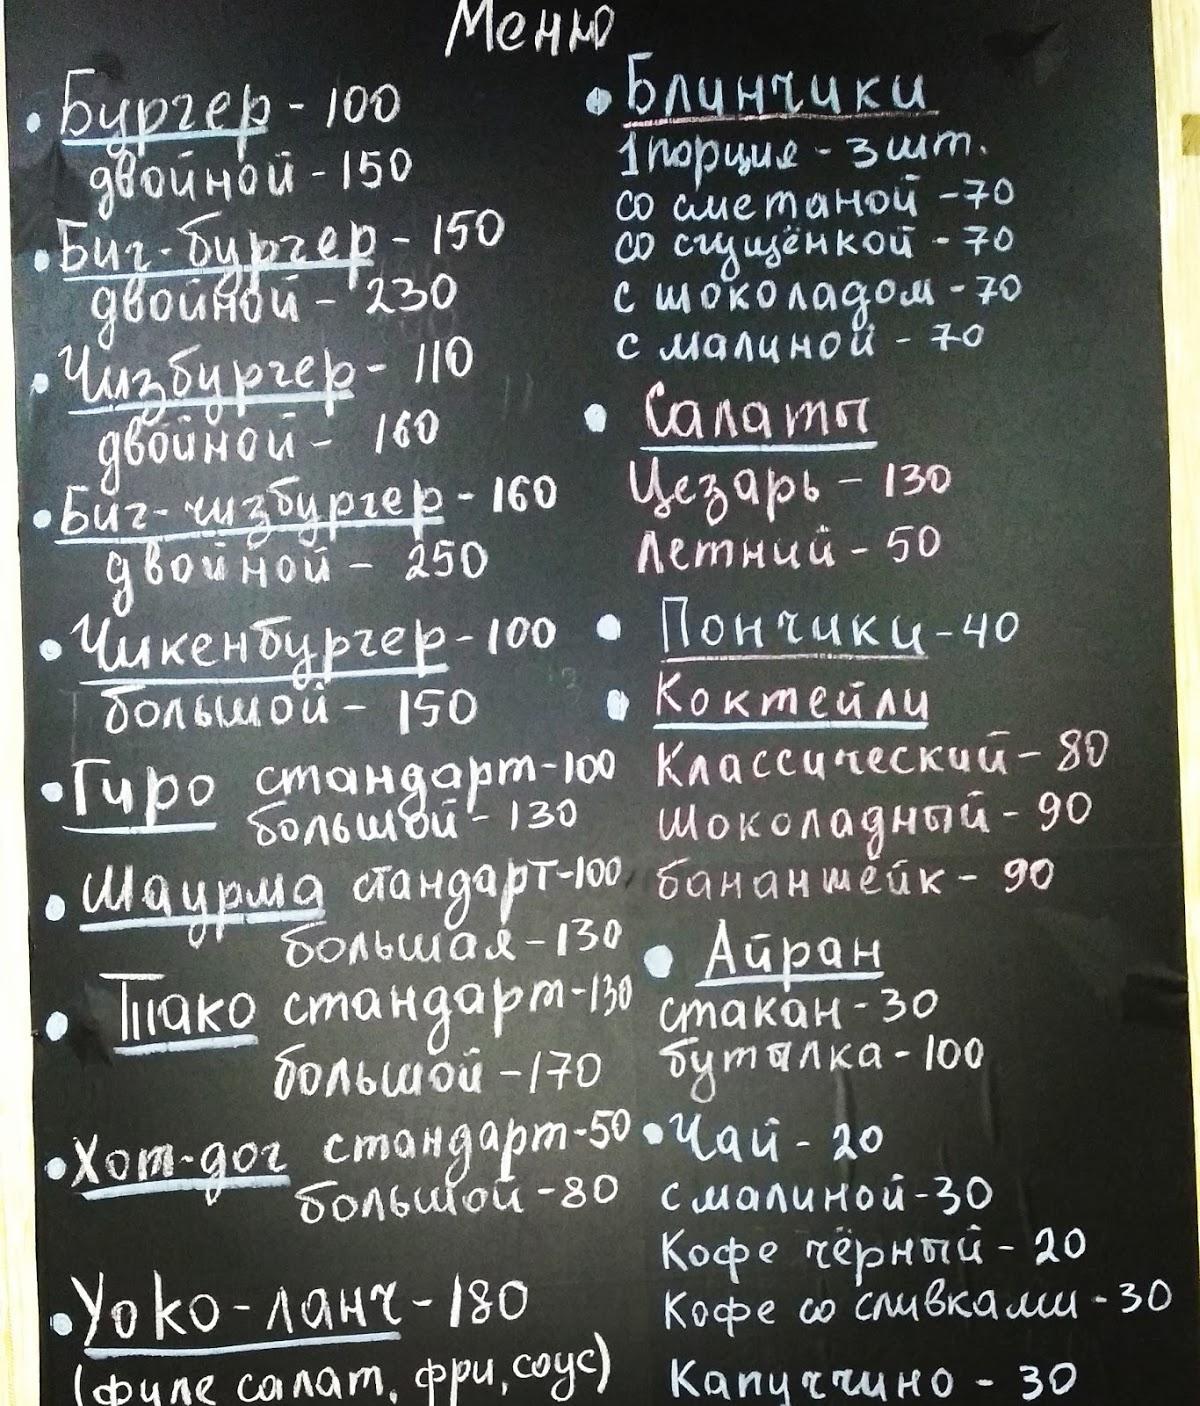 Меню
Бургер - 100
двойной - 150
Биг-бургер - 150
двойной - 230
Чизбургер - 110
двойной - 160
Биг-чизбургер - 160
двойной - 250
Чикенбургер - 100
большой - 150
Гиро стандарт - 100
большой - 130
Шаурма стандарт - 100
большая - 130
Тако стандарт - 130
большой - 170
Хот-дог стандарт - 50
большой - 80
Yoko-ланч - 180
(филе салат, фри, соус)
Блинчики
1 порция - 3 шт.
со сметаной - 70
со сгущёнкой - 70
с шоколадом - 70
с малиной - 70
Салаты
Цезарь - 130
Летний - 50
Пончики - 40
Коктейли
Классический - 80
Шоколадный - 90
бананшейк - 90
Айран
стакан - 30
бутылка - 100
Чай - 20
с малиной - 30
Кофе чёрный - 20
Кофе со сливками - 30
Капуччино - 30